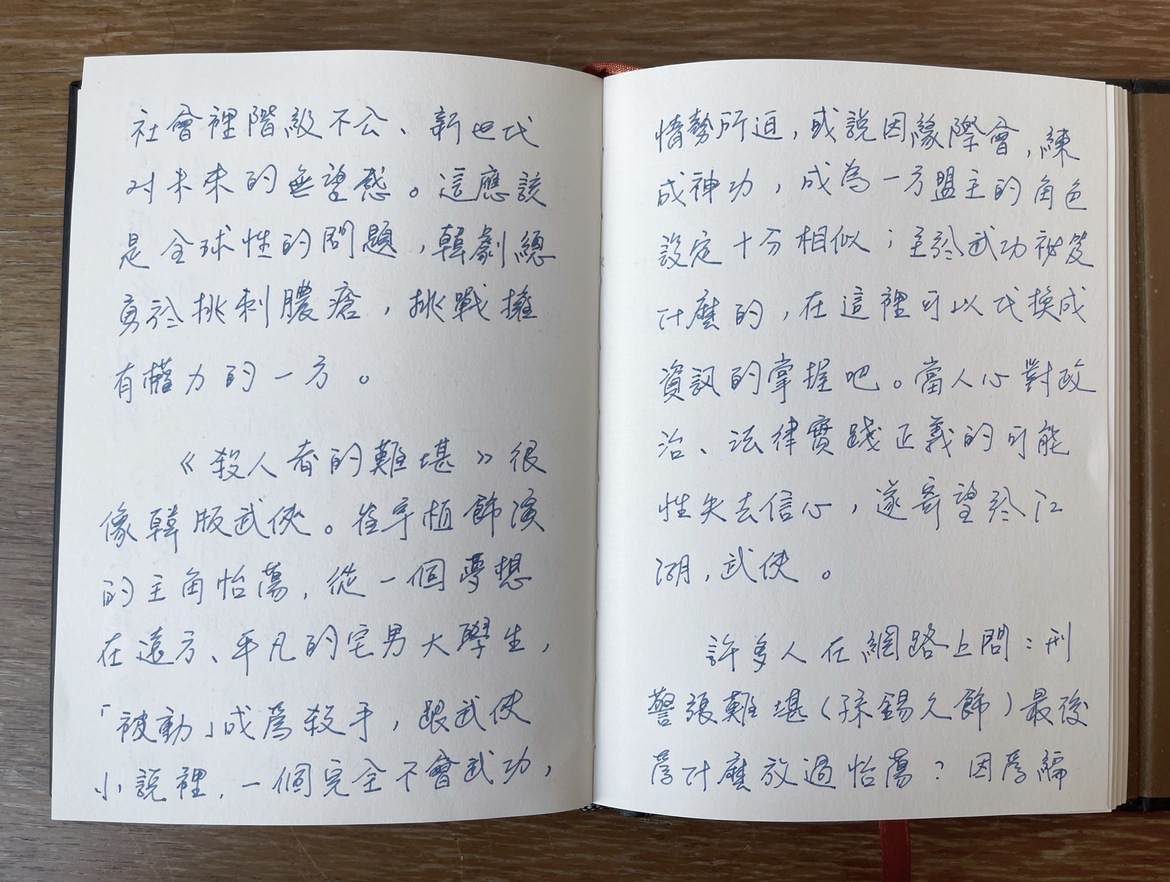 社會裡階級不公、新世代
对未來的無望感。這應該
是全球性的問題，韓劇總
勇於挑刺膿瘡，挑戰擁
有權力的一方。
《殺人者的難堪》很
像韓版武俠。崔宇植飾演
的主角怡蕩，從一個夢想
在遠方、平凡的宅男大學生，
「被動」成為殺手，跟武俠
小說裡，一個完全不會武功，
情勢所迫，或說因緣際會，練
成神功，成為一方盟主的角色
設定十分相似；至於武功祕笈
什麼的，在這裡可以代換成
資訊的掌握吧。當人心對政
治、法律實踐正義的可能
性失去信心，遂寄望於江
湖，武俠。
許多人在網路上問：刑
警張難堪（孫錫久飾）最後
為什麼放過怡蕩？因為編